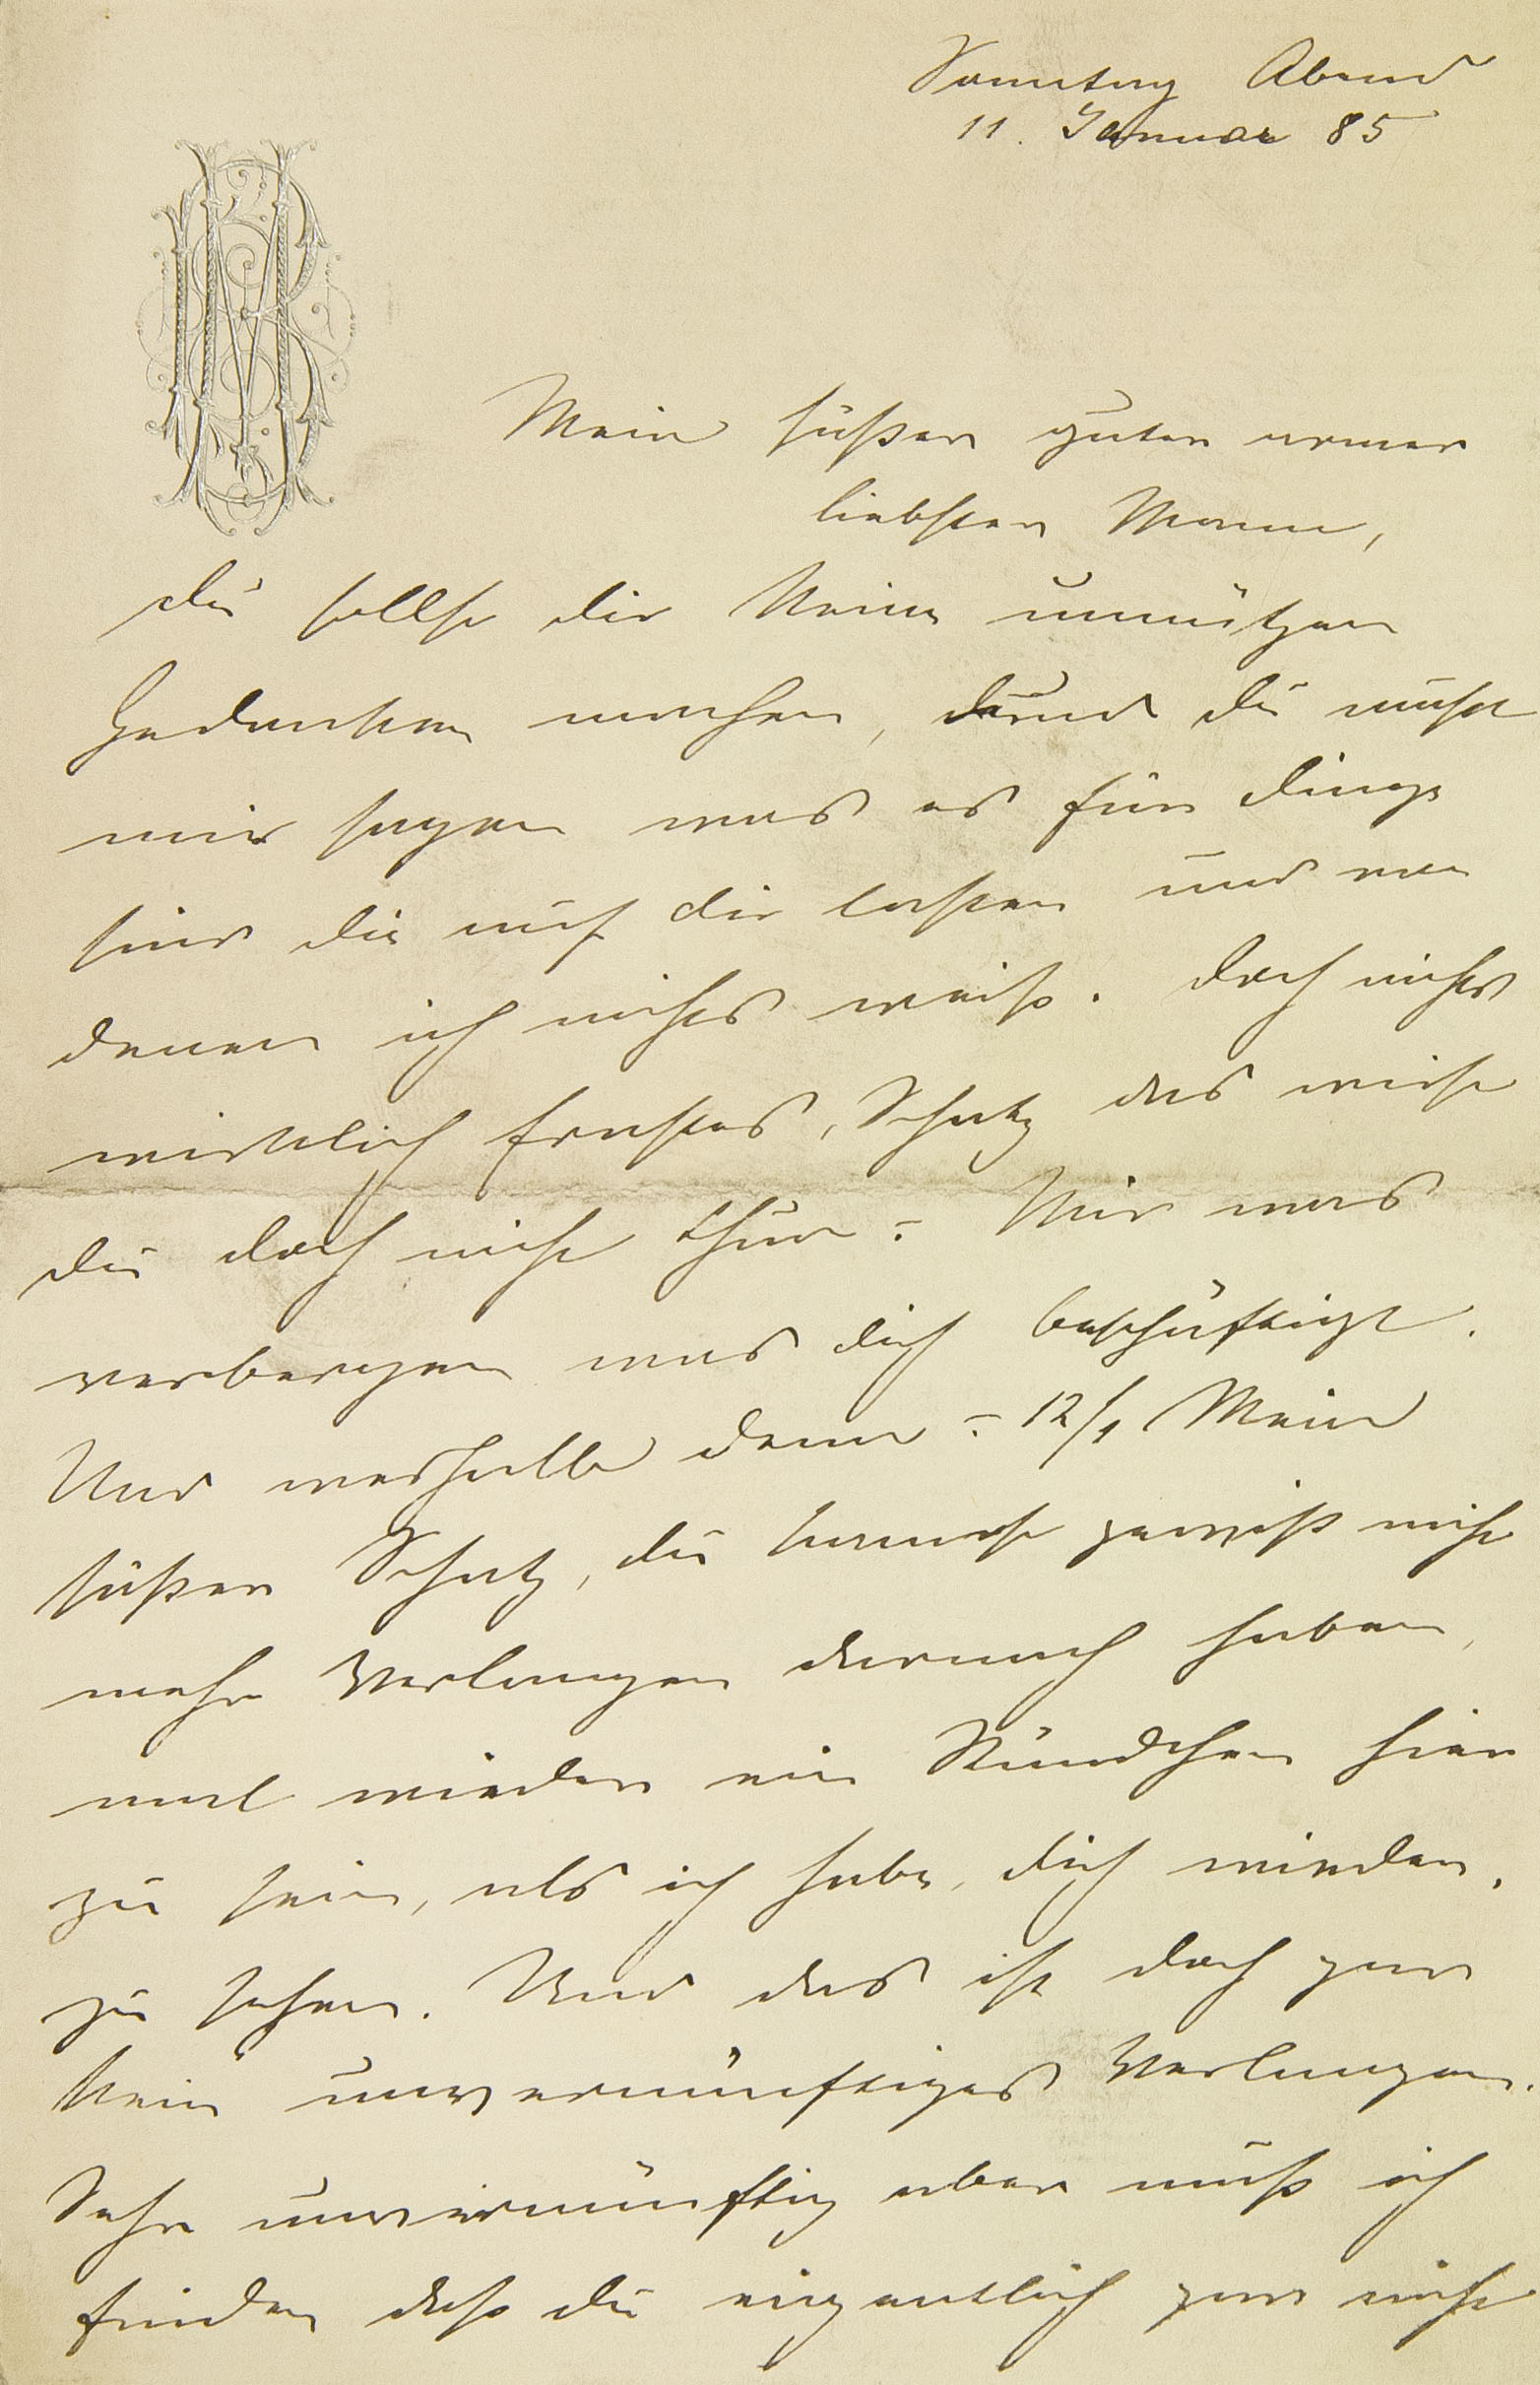 Sonntag Abend
11. Januar 85
Mein süßer guter armer
liebster Mann,
du sollst dir keine unnützen
Gedanken machen, und du mußt
mir sagen was es für Dinge
sind die auf dir lasten und von
denen ich nichts weiß. Doch nichts
wirklich Ernstes, Schatz das wirst
du doch nicht thun? Mir was
verbergen was dich beschäftigt.
Und weshalb denn? 12/1 Mein
süßer Schatz, du kannst gewiß nicht
mehr Verlangen darnach haben,
mal wieder ein Stündchen hier
zu sein, als ich habe, dich wieder
zu sehen. Und das ist doch gar
kein unvernünftiges Verlangen.
Sehr unvernünftig aber muß ich
finden daß du eigentlich gar nicht